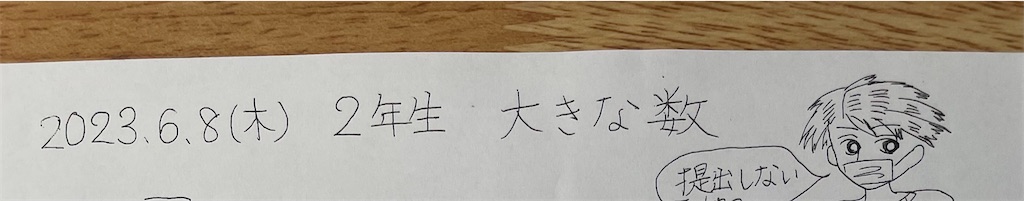 2023.6.8(木) 2年生 大きな数
提出しない